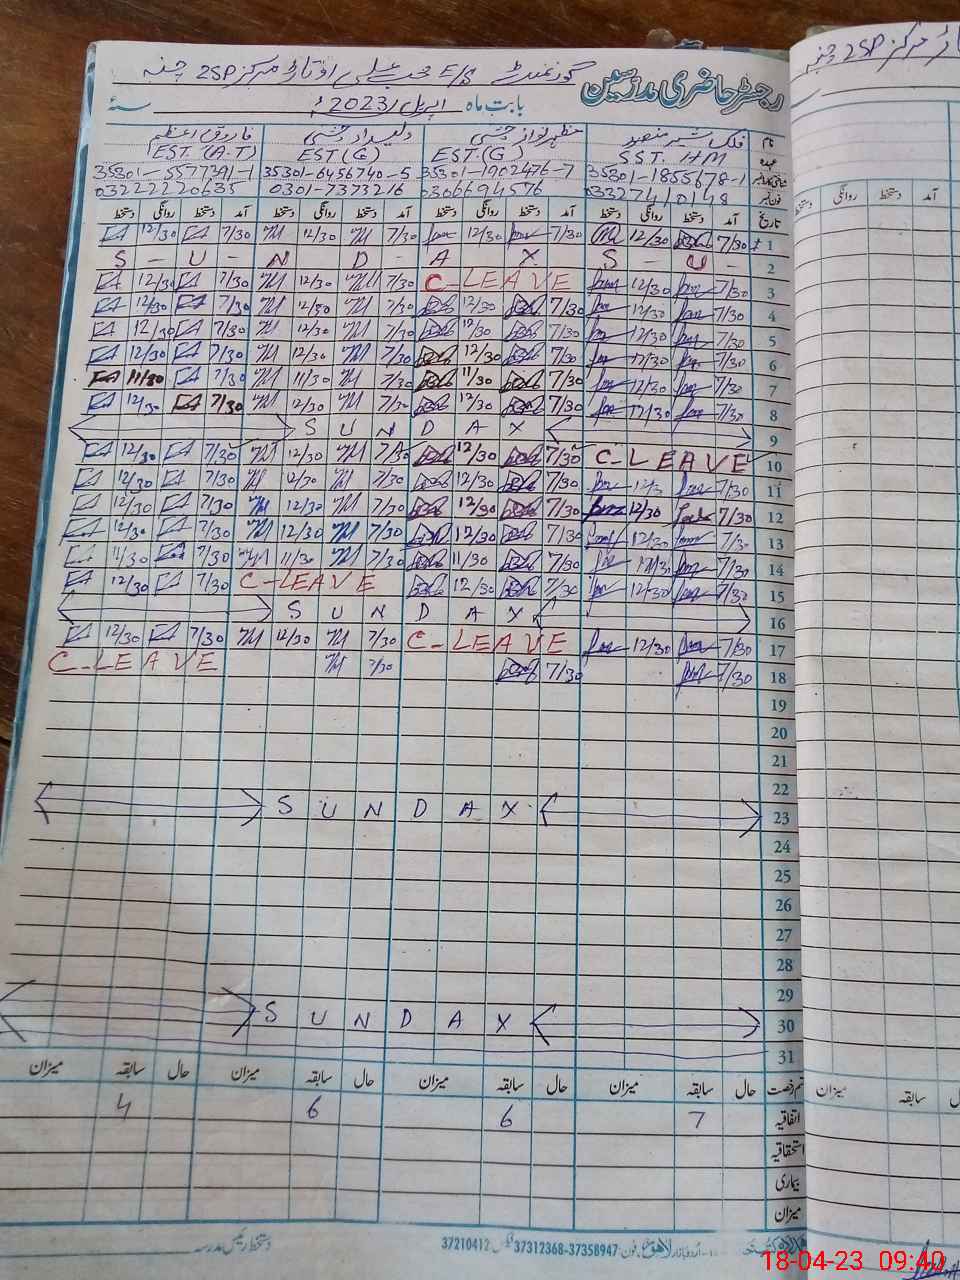 رجسٹر حاضری مدرسین گورنمنٹ E/S محب علی اوتاڑ مرکز 2SP چنہ
بابت ماہ اپریل 2023ء سنہ
نام فلک شیر منصور مظہر نواز چشتی دلپسداد چشتی فاروق اعظم
عہدہ SST. HM EST.(G) EST(G) EST.(A.T)
شناختی کارڈ نمبر 35301-1855678-1 35301-1902476-7 35301-6456740-5 35301-5577391-1
فون نمبر 03327410148 03066694576 0301-7373216 03222220635
تاریخ آمد دستخط روانگی دستخط آمد دستخط روانگی دستخط آمد دستخط روانگی دستخط آمد دستخط روانگی دستخط
1 7/30 12/30 7/30 12/30 7/30 12/30 7/30 12/30
2 S - U - N D - A X S - U -
3 7/30 12/30 C-LEAVE 7/30 12/30 7/30 12/30
4 7/30 12/30 7/30 12/30 7/30 12/30 7/30 12/30
5 7/30 12/30 7/30 12/30 7/30 12/30 7/30 12/30
6 7/30 12/30 7/30 12/30 7/30 12/30 7/30 12/30
7 7/30 12/30 7/30 11/30 7/30 11/30 7/30 11/30
8 7/30 12/30 7/30 12/30 7/30 12/30 7/30 12/30
9 S U N D A X
10 C-LEAVE 7/30 12/30 7/30 12/30 7/30 12/30
11 7/30 12/3 7/30 12/30 7/30 12/30 7/30 12/30
12 7/30 12/30 7/30 12/30 7/30 12/30 7/30 12/30
13 7/30 12/30 7/30 12/30 7/30 12/30 7/30 12/30
14 7/30 11/30 7/30 11/30 7/30 11/30 7/30 11/30
15 7/30 12/30 7/30 12/30 C-LEAVE 7/30 12/30
16 S U N D A X
17 7/30 12/30 C-LEAVE 7/30 12/30 7/30 12/30
18 7/30 7/30 7/30 C-LEAVE
19
20
21
22
23 S U N D A X
24
25
26
27
28
29
30 S U N D A X
31
قسم رخصت حال سابقہ میزان حال سابقہ میزان حال سابقہ میزان حال سابقہ میزان
اتفاقیہ 7 6 6 4
استحقاقیہ
بیماری
میزان
دستخط رئیس مدرسہ
اُردو بازار لاہور فون: 37358947-37312368 فیکس 37210412
مرکز 2SP چنہ
دستخط روانگی دستخط آمد
میزان سابقہ
18-04-23 09:40